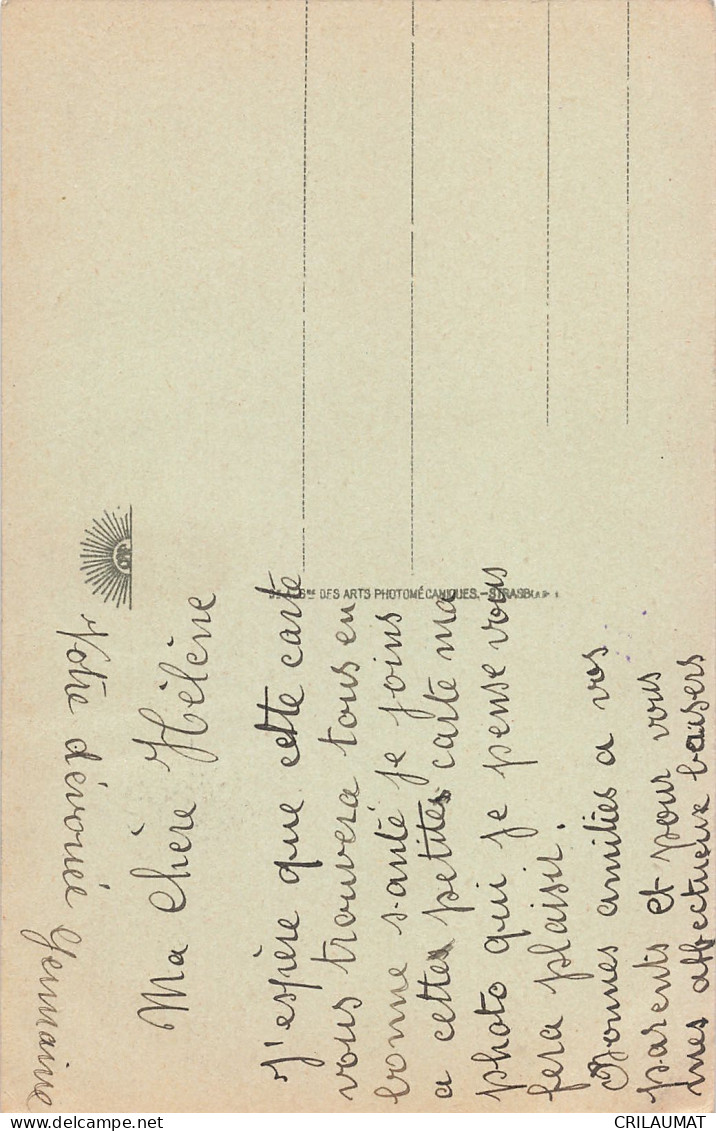 Ma chère Hélène
J'espère que cette carte
vous trouvera tous en
bonne santé je joins
a cettes petites carte ma
photo qui je pense vous
fera plaisir.
Bonnes amitiés a vos
parents et pour vous
mes affectueux baisers
Votre dévouée
Germaine
DES ARTS PHOTOMÉCANIQUES.-STRASBOURG
CRILAUMAT